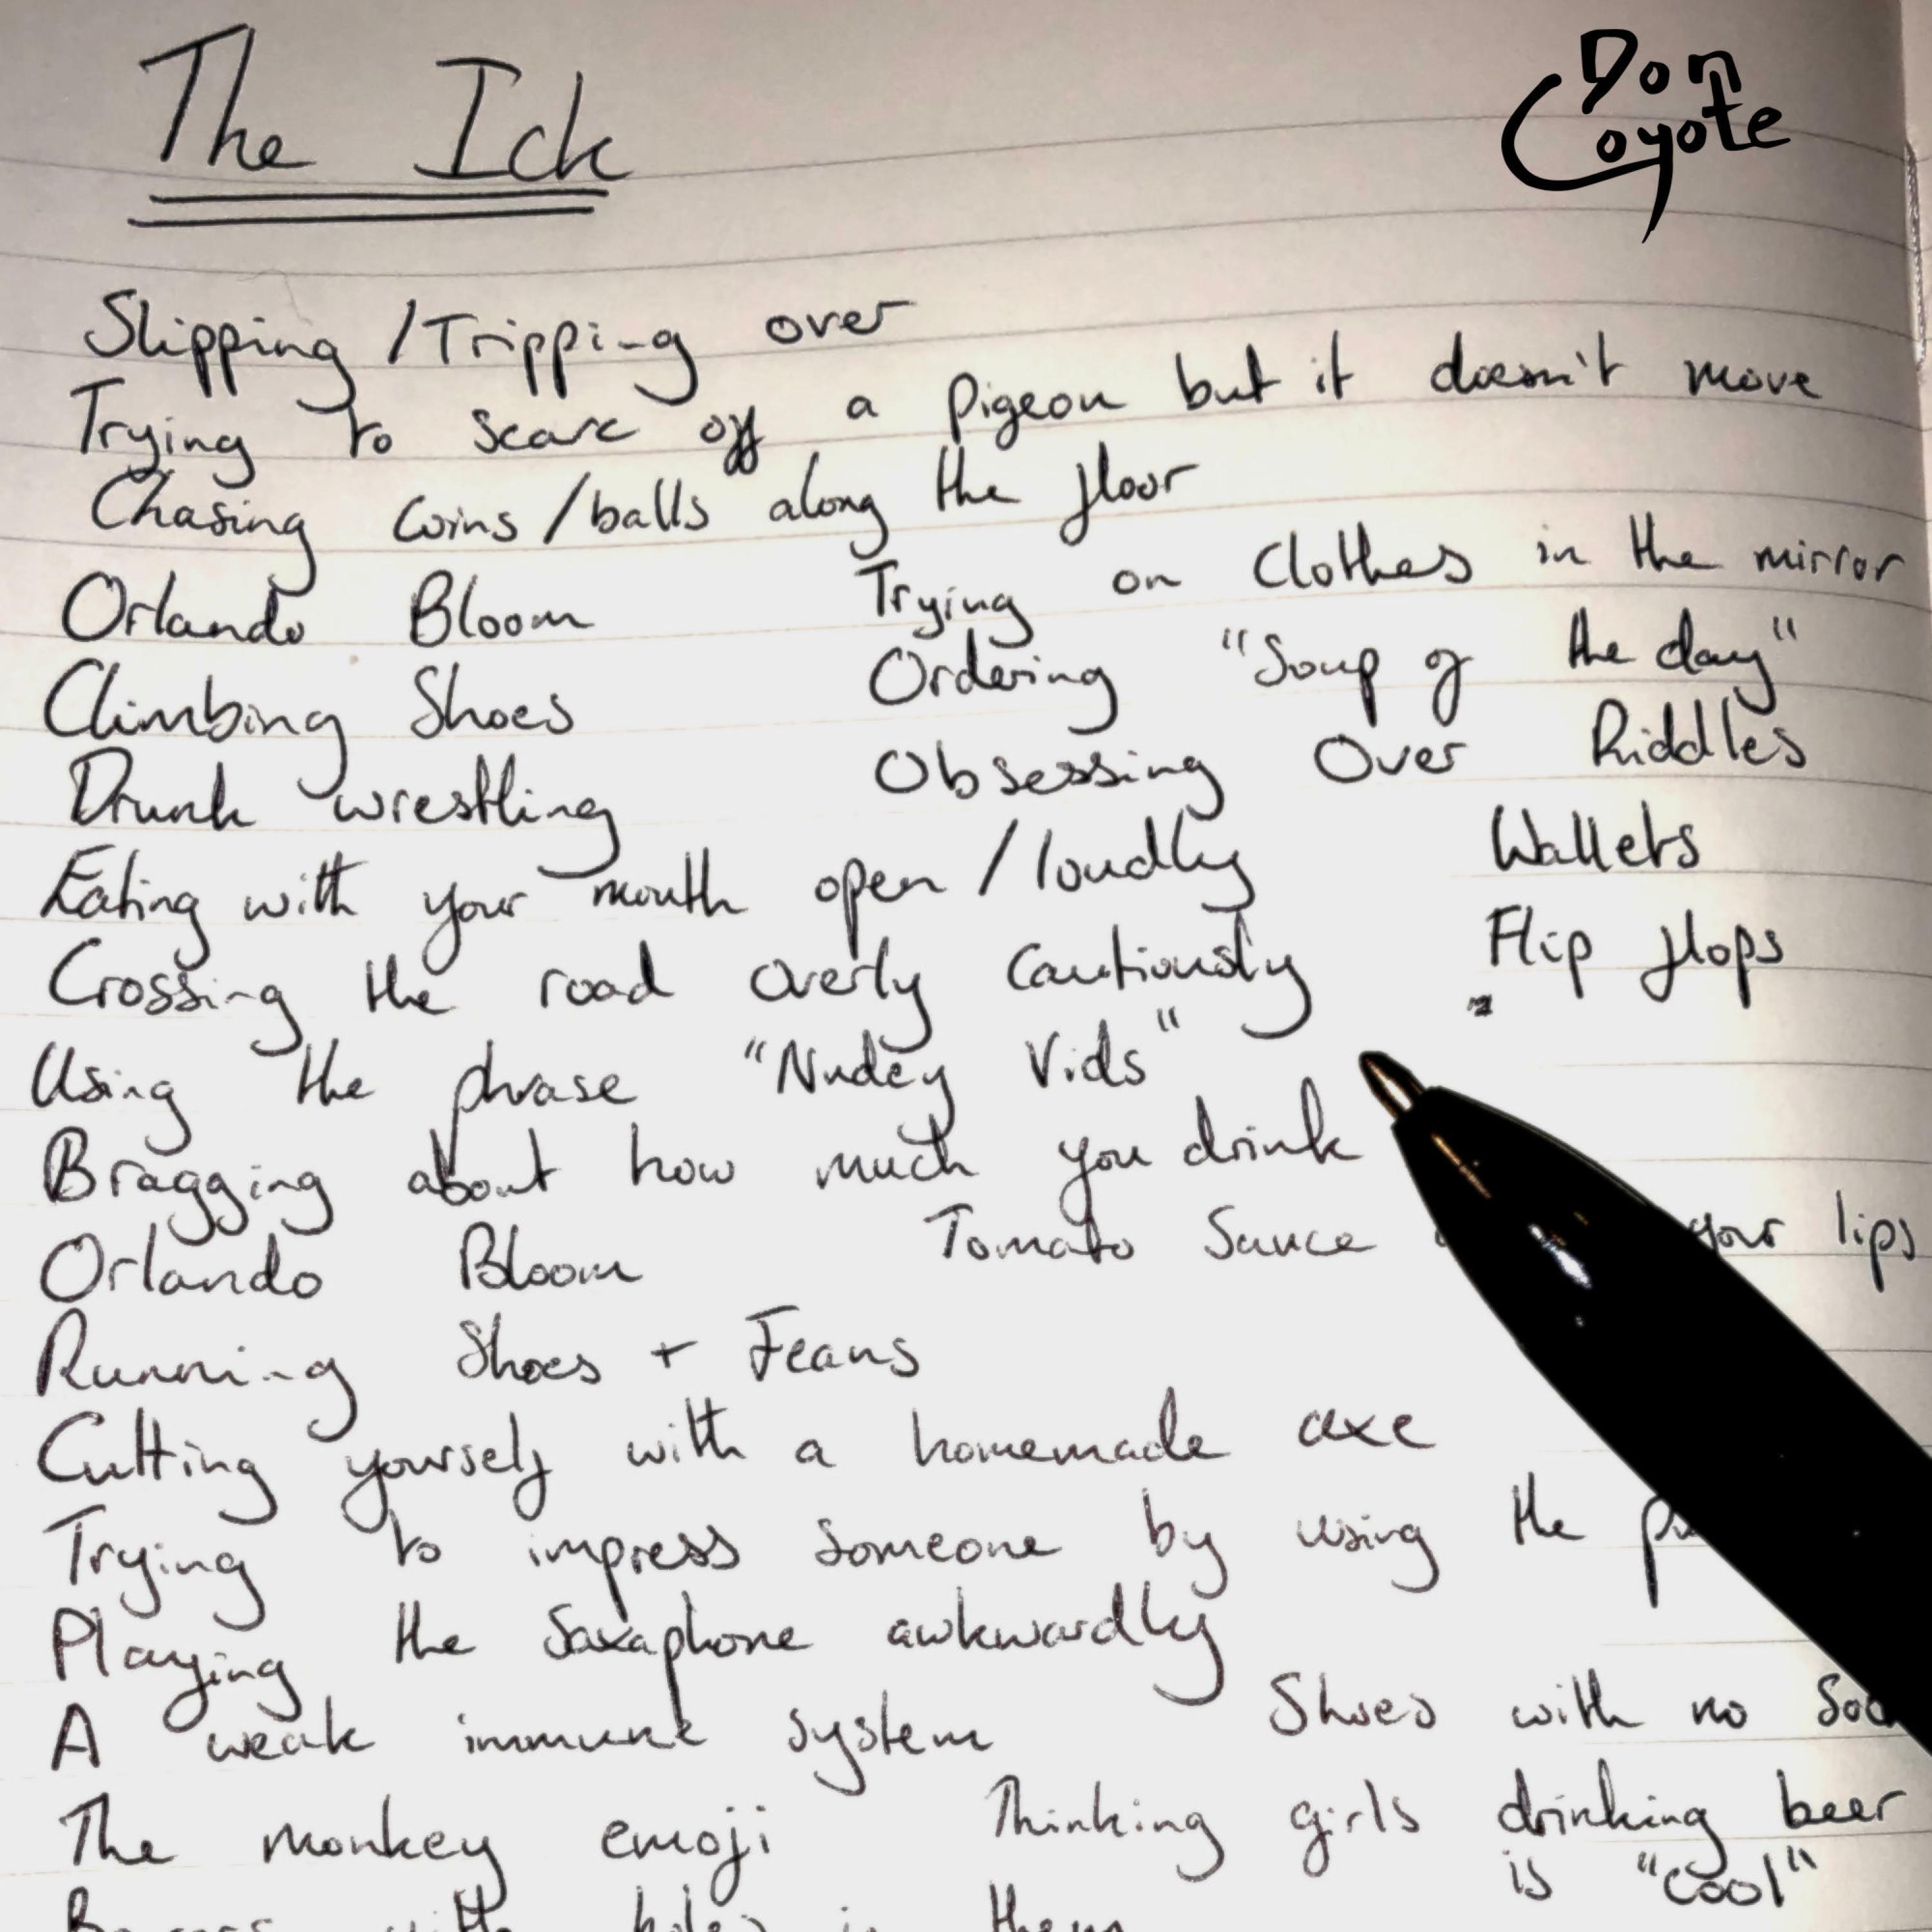 The Ick
Don
Coyote
Slipping / Tripping over
Trying to scare off a pigeon but it doesn't move
Chasing coins / balls along the floor
Orlando Bloom
Trying on clothes in the mirror
Climbing Shoes
Ordering "Soup of the day"
Drunk wrestling
Obsessing Over Riddles
Eating with your mouth open / loudly
Wallets
Crossing the road overly cautiously
Flip flops
Using the phrase "Nudey Vids"
Bragging about how much you drink
Orlando Bloom
Tomato Sauce your lips
Running Shoes + Jeans
Cutting yourself with a homemade axe
Trying to impress someone by using the
Playing the Saxaphone awkwardly
A weak immune system
Shoes with no
The monkey emoji
Thinking girls drinking beer
is "cool"
with holes in them